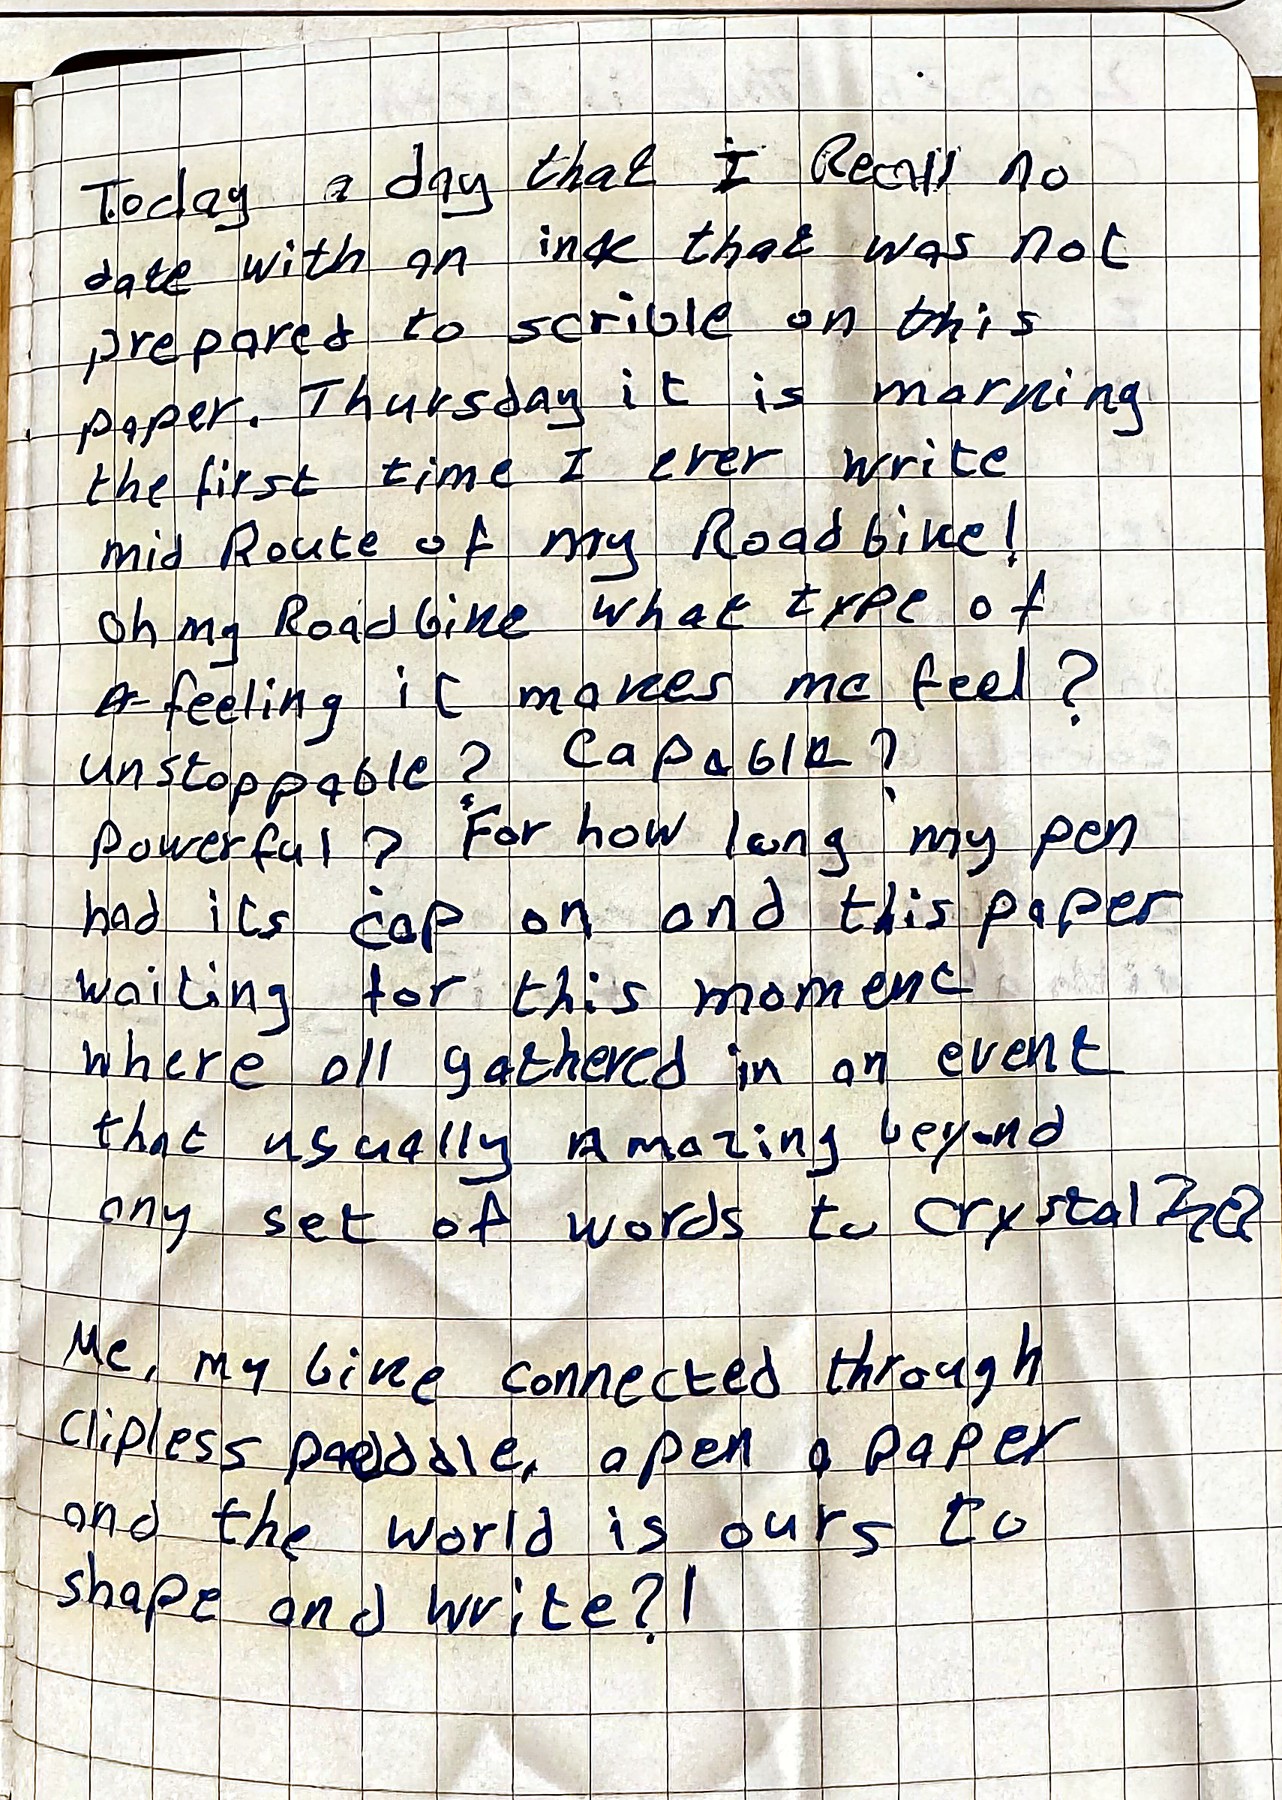 Today a day that I Recall no
date with an ink that was not
prepared to scrible on this
paper. Thursday it is morning
the first time I ever write
mid Route of my Roadbike!
Oh my Roadbike what type of
feeling it makes me feel?
unstoppable? Capable?
Powerful? For how long my pen
had its cap on and this paper
waiting for this moment
where all gathered in an event
that usually Amazing beyond
any set of words to Crystalize?
Me, my bike connected through
Clipless paeddle, a pen a paper
and the world is ours to
shape and write?!